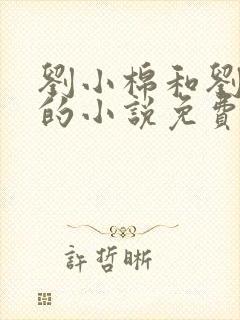 劉小棉和劉
的小說免費
許哲晰